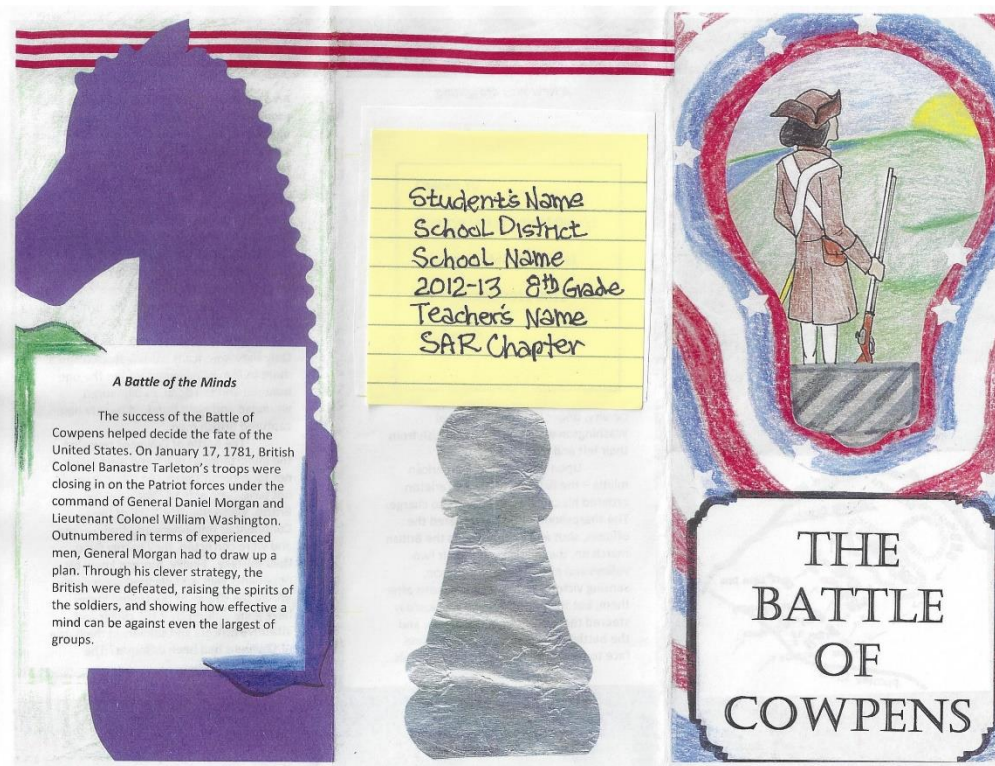 A Battle of the Minds
The success of the Battle of
Cowpens helped decide the fate of the
United States. On January 17, 1781, British
Colonel Banastre Tarleton's troops were
closing in on the Patriot forces under the
command of General Daniel Morgan and
Lieutenant Colonel William Washington.
Outnumbered in terms of experienced
men, General Morgan had to draw up a
plan. Through his clever strategy, the
British were defeated, raising the spirits of
the soldiers, and showing how effective a
mind can be against even the largest of
groups.
Student's Name
School District
School Name
2012-13 8th Grade
Teacher's Name
SAR Chapter
THE
BATTLE
OF
COWPENS